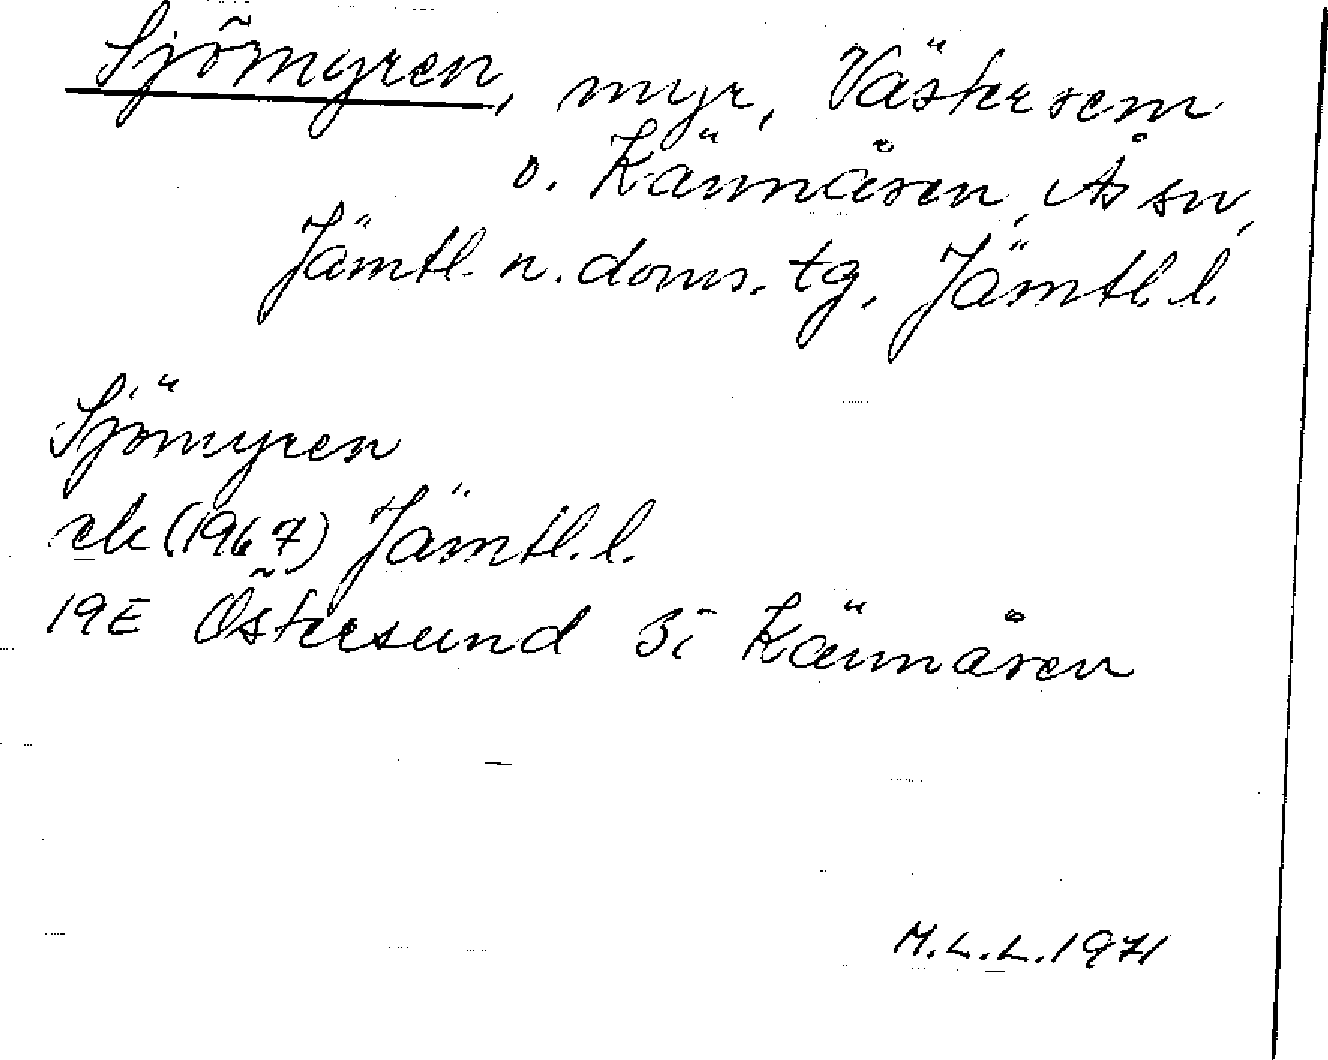 Sjömyren, myr, Västersem
o. Kännåsen, Ås sn,
Jämtl. n. doms. tg, Jämtl. l.
Sjömyren
ek (1967) Jämtl. l.
19E Östersund 3i Kännåsen
M.L.L. 1971